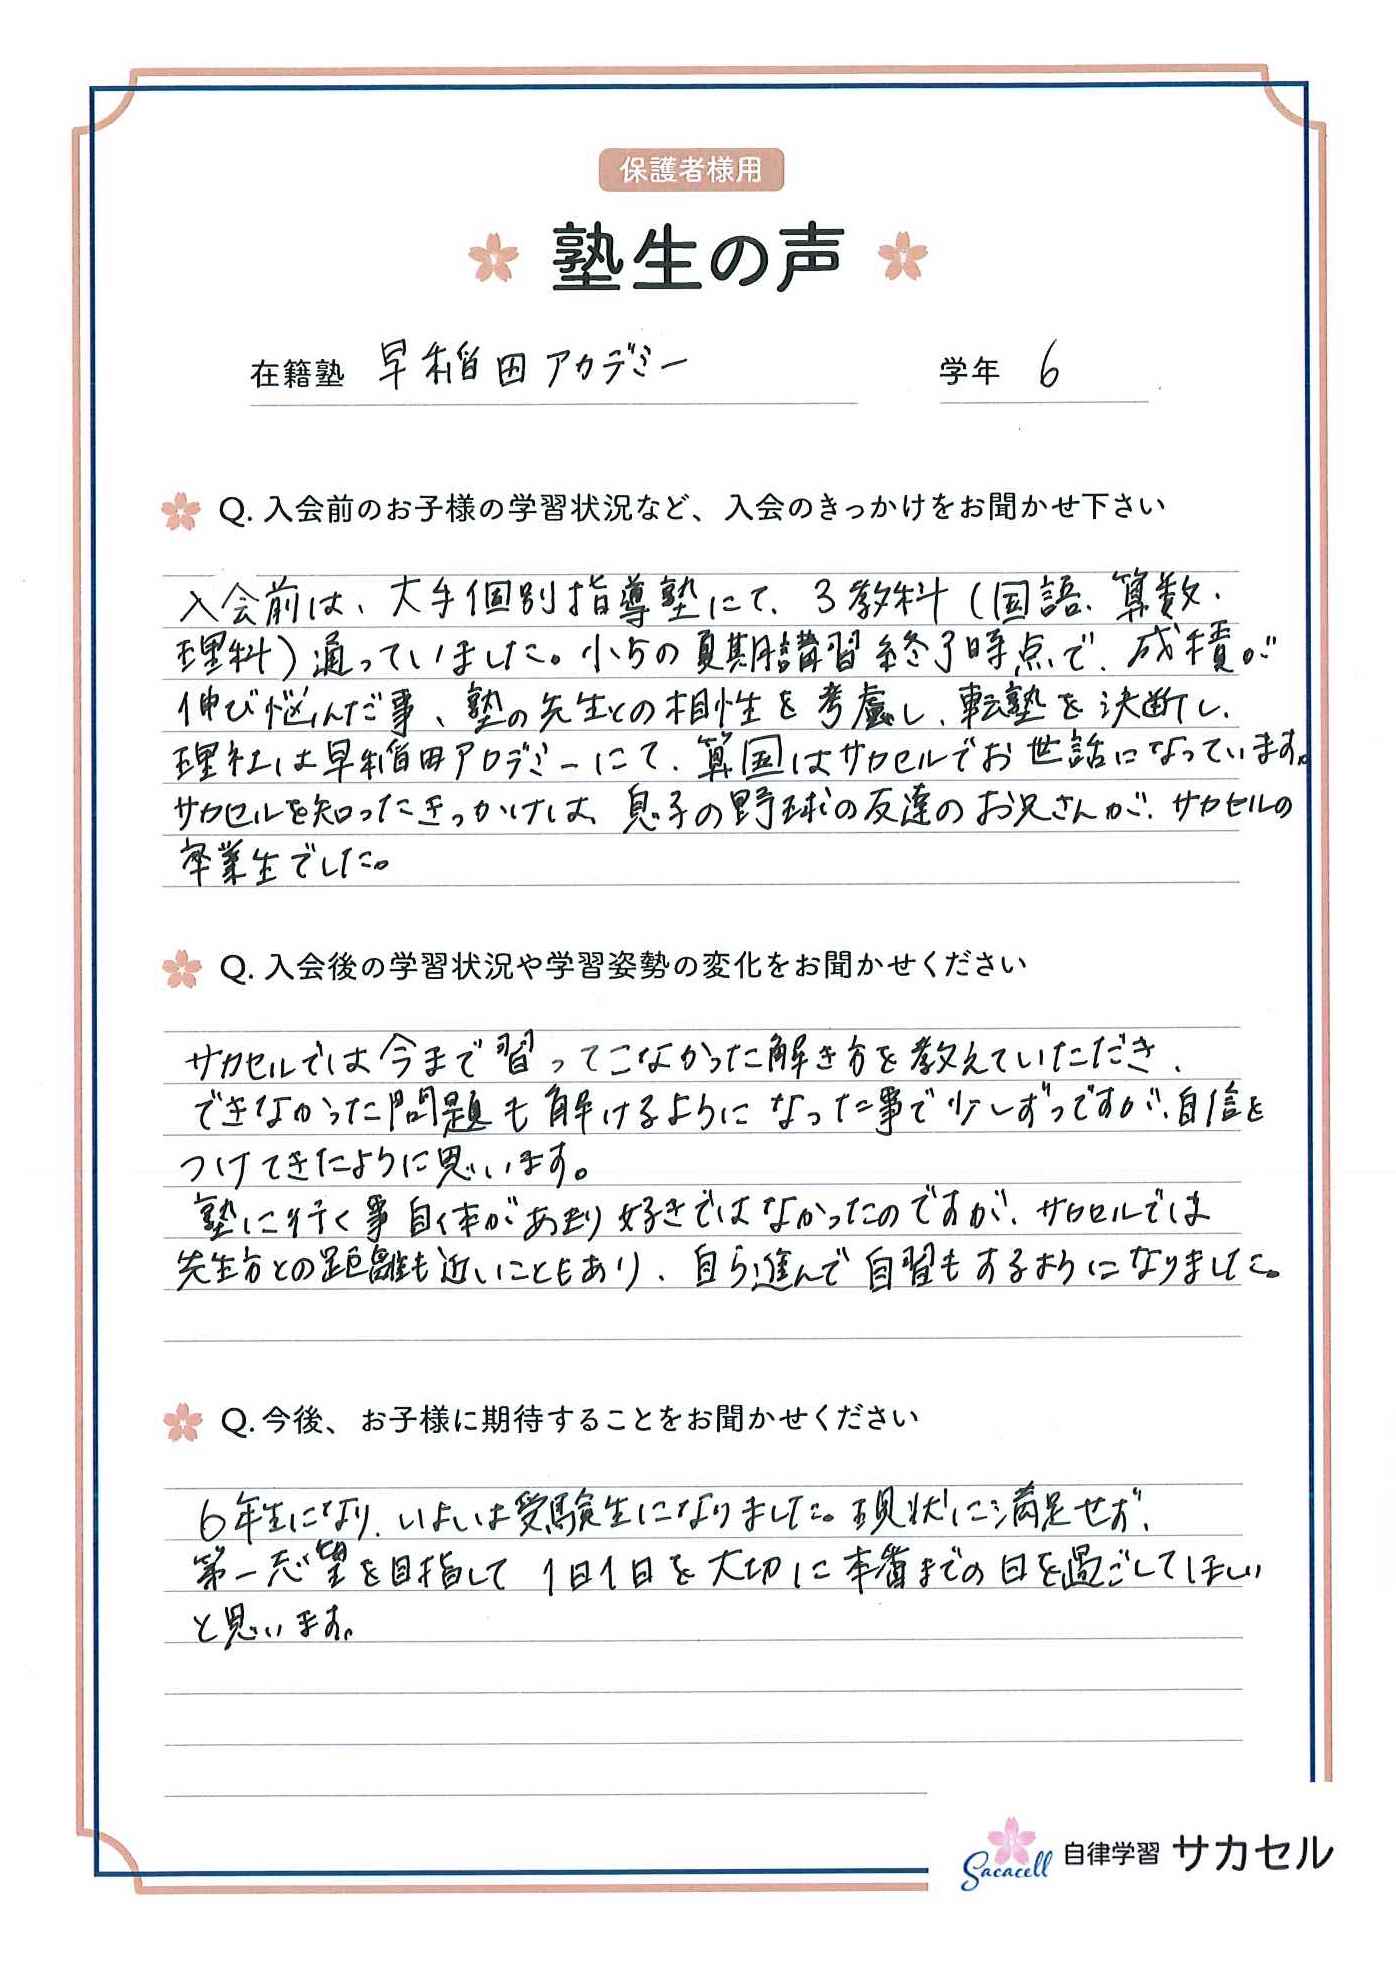 保護者様用
塾生の声
在籍塾 早稲田アカデミー 学年 6
Q. 入会前のお子様の学習状況など、入会のきっかけをお聞かせ下さい
入会前は、大手個別指導塾にて、3教科(国語、算数、
理科)通っていました。小5の夏期講習終了時点で、成積が
伸び悩んだ事、塾の先生との相性を考慮し、転塾を決断し、
理社は早稲田アカデミーにて、算国はサカセルでお世話になっています。
サカセルを知ったきっかけは、息子の野球の友達のお兄さんが、サカセルの
卒業生でした。
Q. 入会後の学習状況や学習姿勢の変化をお聞かせください
サカセルでは今まで習ってこなかった解き方を教えていただき、
できなかった問題も解けるようになった事で少しずつですが、自信を
つけてきたように思います。
塾に行く事自体があまり好きではなかったのですが、サカセルでは
先生方との距離も近いこともあり、自ら進んで自習もするようになりました。
Q. 今後、お子様に期待することをお聞かせください
6年生になり、いよいよ受験生になりました。現状に満足せず、
第一志望を目指して1日1日を大切に本番までの日を過ごしてほしい
と思います。
Sacacell 自律学習 サカセル